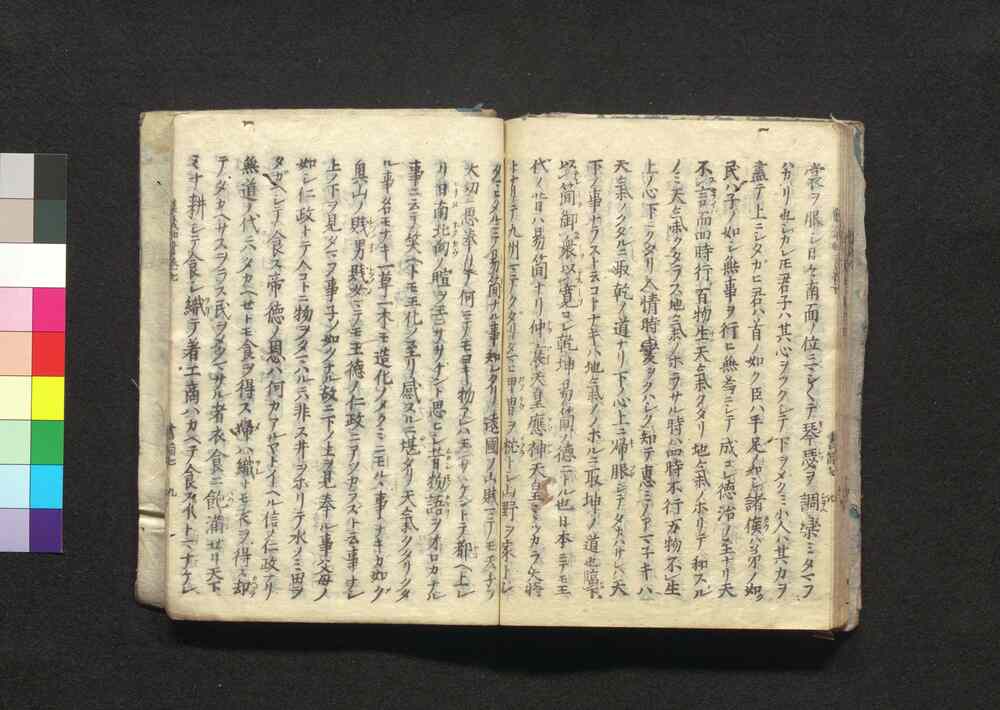 裳ヲ服シ日々南面ノ位ニマシ〱テ琴瑟ヲ調樂ミタマフ
分リ也シカレ𪜈君子ハ其心ヲツクシテ下ヲメクミ小人ハ其力ヲ
盡テ上ニシタカヒ君ハ首ノ如ク臣ハ手足ノ如ク諸侯ハ弟ノ如ク
民ハ子ノ如シ無事ヲ行ヒ無為ニシテ成ス德治ノ至ナリ天
不言而四時行百物生天ノ氣クタリ地ノ氣ノホリテ和スル
ノミ天ノ氣クタラス地ノ氣ノホラサル時ハ四時不行万物不生
上ノ心下ニクタリ人情時變ヲクハシク知テ惠ミノアマ子キハ
天ノ氣ノクタルニ取乾ノ道ナリ下ノ心上ニ帰服シテタカハサルハ天
下ノ事ナラスト云コトナキハ地ノ氣ノノホルニ取坤ノ道也臨下
以簡御衆以寛コレ乾坤易簡ノ德ニトル也日本ニテモ王
代ノ昔ハ易簡ナリ仲哀天皇應神天皇ミツカラ大將
トナリテ九州マテクタリタマヒ甲冑ヲ枕トシ山野ヲ家トシ
タマヒタルニテ易簡ナル事知レタリ遠國ノ山賤マテモ天子ヲ
大切ニ思奉リテ何ニテモヨキ物アレハモチサヽケントテ都ヘ上
リ日南北向ノ暄ヲ王ニサヽケント思ヒシ昔物語ヲオロカナル
事ニ云テ笑ヘトモ王化ノ至リ感スルニ堪タリ天ノ氣クタリクタ
ル事名モナキ一草一木モ造化ノメクミニモルヽ事ナキカ如ク
奥山ノ賎男賎女マテモ王德ノ仁政ニアツカラスト云事ナシ
上ノ下ヲ見タマフ事子ノ如クナル故ニ下ノ上ヲ見奉ル事父母ノ
如シ仁政トテ人コトニ物ヲタマハルニハ非ス井ヲホリテ水ノミ田ヲ
タカヘシテ食ス帝德ノ恩ハ何カアルマトイヘル信ノ仁政ナリ
無道ノ代ニハタカヘセトモ食ヲ得ス婦ハ織トモ衣ヲ得ス却
テタカヘサスヲラス民ヲメクマサル者衣食ニ飽満セリ天下
ミナ耕シテ食シ織テ着工商ハカヘテ食スルトマナケレ